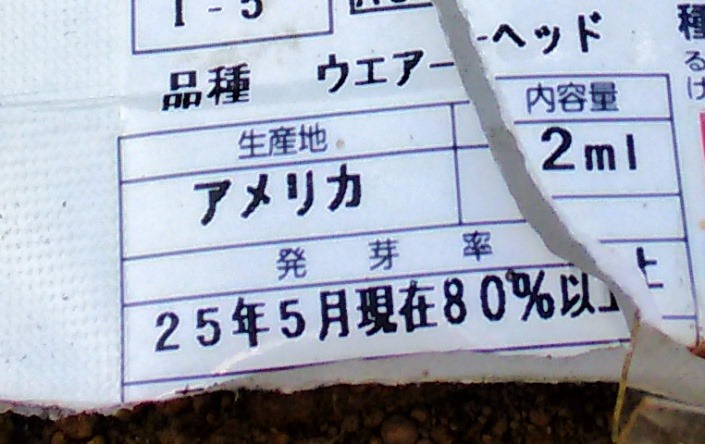 1-5
品種 ウエアーヘッド
生産地 内容量
アメリカ 2ml
発芽率
25年5月現在80%以上